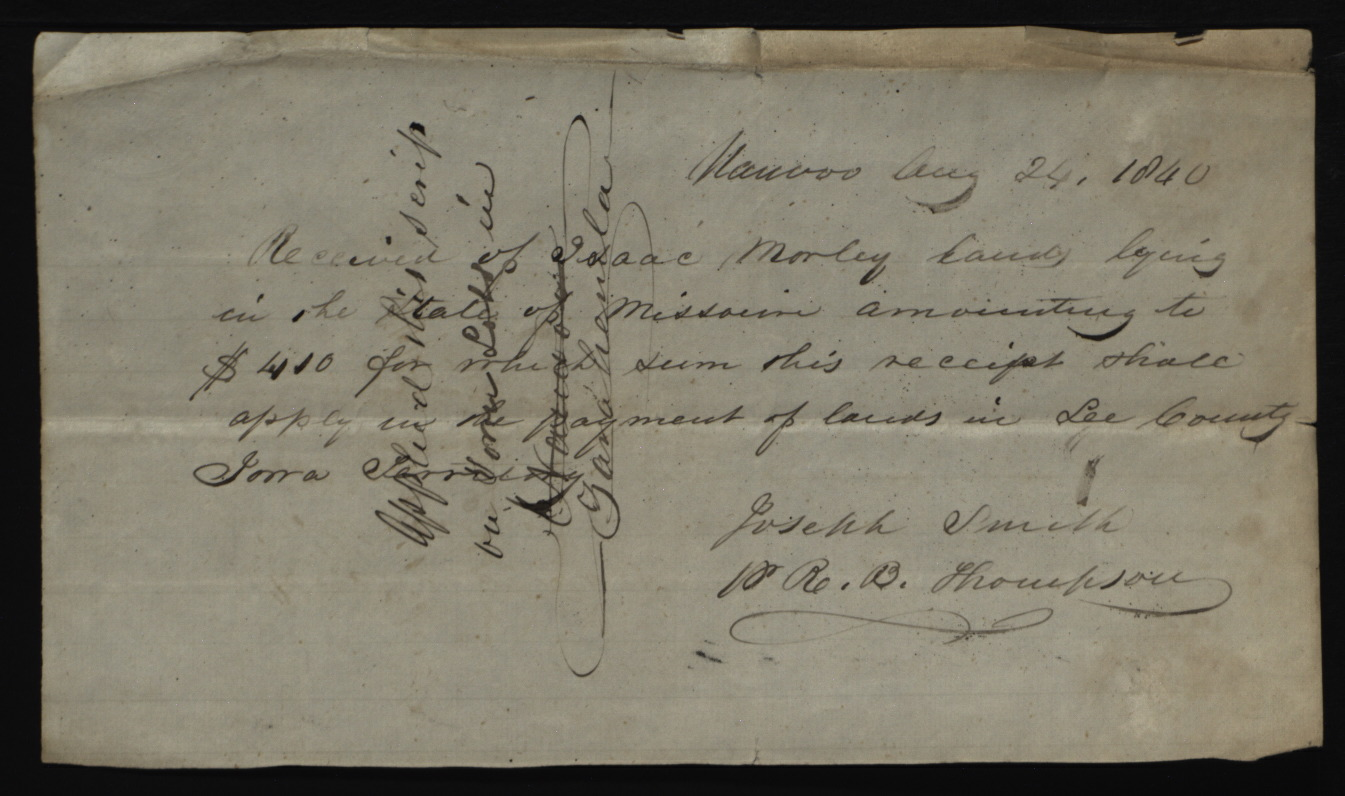 Nauvoo Aug 24, 1840
Received of Isaac Morley Lands lying
in the State of Missouri amounting to
$410 for which sum this receipt shall
apply in the payment of lands in Lee County
Iowa Territory
Joseph Smith
pr R. B. Thompson
Applied this scrip
on Town Lots in
Zarahemla